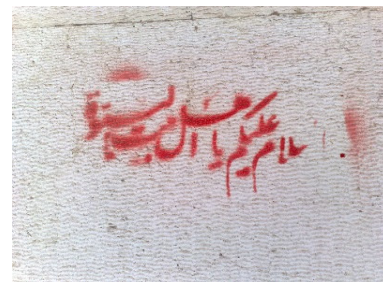 سلام علیکم یا اهل بیت النبوة